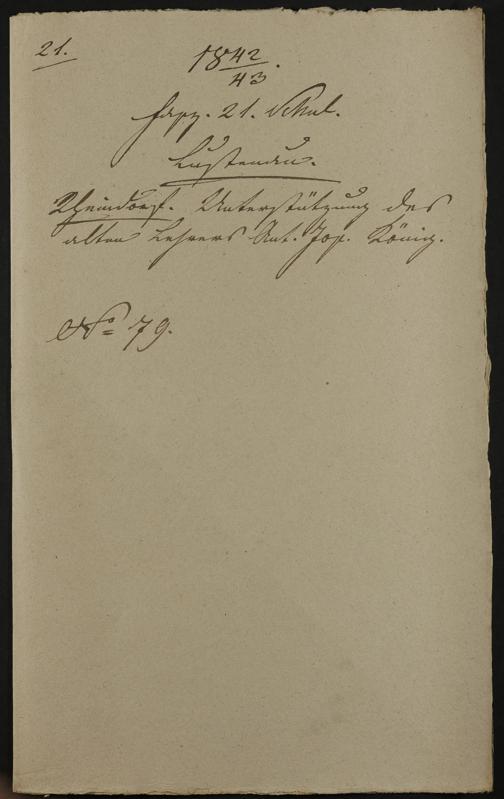 21.
1842/43.
Fasz. 21. Schul.
Lustenau.
Rheindorf. Unterstützung des
alten Lehrers Ant. Jos. König.
No 79.